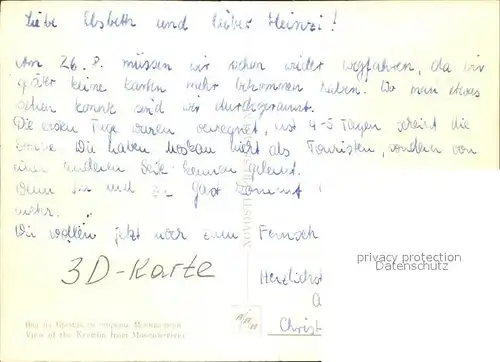 Liebe Elsbeth und lieber Heinzi!
Am 26. 8. müssen wir schon wieder wegfahren, da wir
später keine Karten mehr bekommen haben. Wo man etwas
sehen konnte sind wir durchgerannt.
Die ersten Tage waren verregnet, seit 4-5 Tagen scheint die
Sonne. Wir haben Moskau nicht als Touristen, sondern von
einer anderen Seite kennen gelernt.
Denn und Gast kommt
mehr.
Wir wollen jetzt noch zum Fernseh
privacy protection
Datenschutz
3D-Karte
Herzlichst
Christ
Вид на Кремль со стороны Москвы-реки
View of the Kremlin from Moscow-river
NOVOSTI